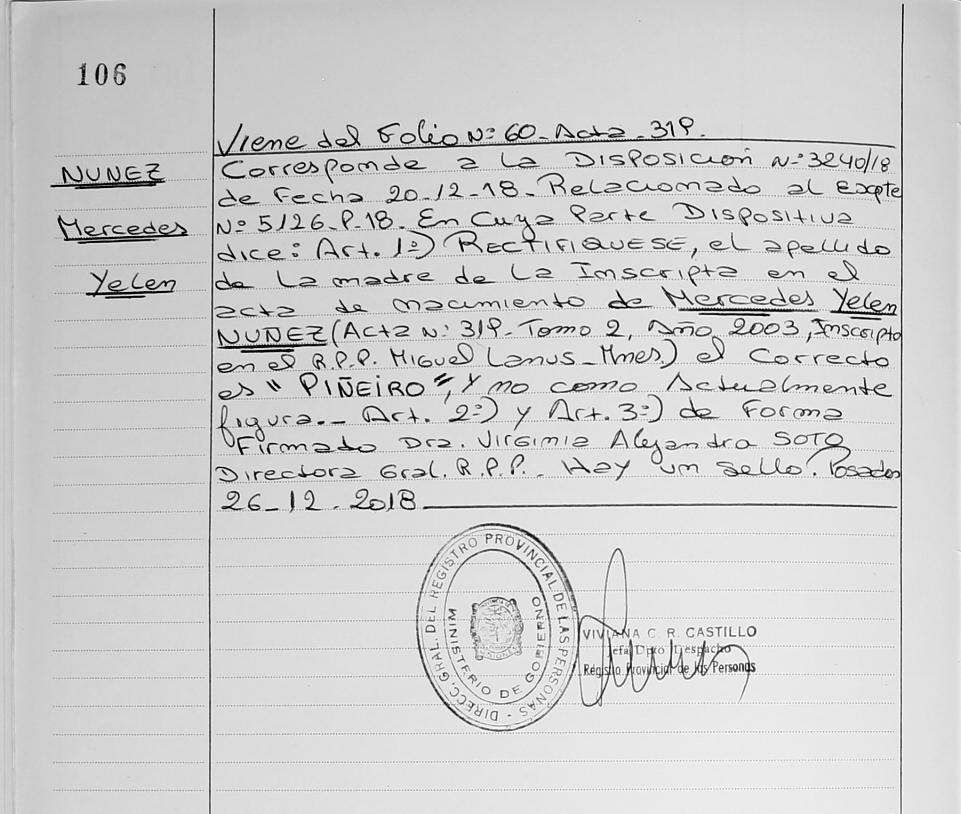 106
Viene del Folio Nº 60 - Acta - 319.
NUNEZ
Mercedes
Yelen
Corresponde a la DISPOSICIÓN Nº 3240/18
de Fecha 20-12-18 - Relacionado al Expte
Nº 5126-P-18. En Cuya Parte Dispositiva
dice: Art. 1º) RECTIFIQUESE, el apellido
de La madre de La Inscripta en el
acta de nacimiento de Mercedes Yelen
NUNEZ (Acta Nº 319 - Tomo 2, Año 2003, Inscripto
en el R.P.P. Miguel Lanus - Mnes.) el Correcto
es "PIÑEIRO", y no como Actualmente
figura.- Art. 2º) y Art. 3º) de Forma
Firmado Dra. Virginia Alejandra SOTO
Directora Gral. R.P.P. - Hay un sello. Posadas
26-12-2018
DIRECC. GRAL. DEL REGISTRO PROVINCIAL DE LAS PERSONAS -
MINISTERIO DE GOBIERNO
VIVIANA C. R. CASTILLO
Jefa Dpto Despacho
Registro Provincial de las Personas